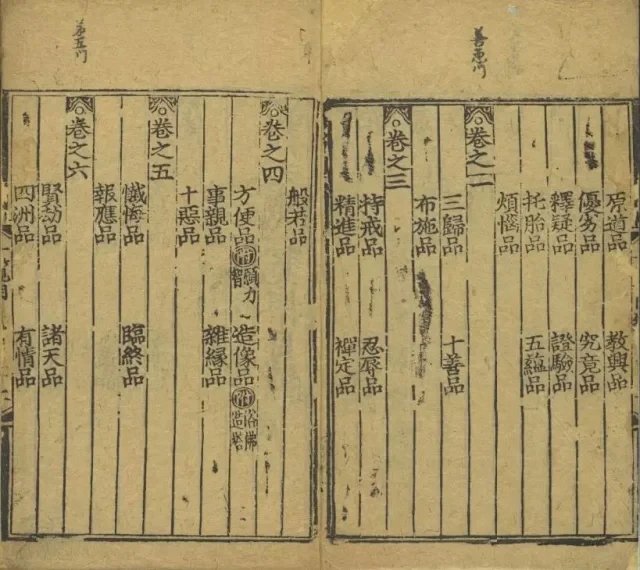 善惡门
原道品 教興品
優劣品 究竟品
釋疑品 證驗品
托胎品 五蘊品
煩惱品
卷之二
三歸品 十善品
布施品
卷之三
持戒品 忍辱品
精進品 禪定品
般若品
卷之四
方便品 附願力智 造像品 附浴佛造塔
事親品 雜緣品
十惡品
卷之五
懺悔品 臨終品
報應品
卷之六
賢劫品 諸天品
四洲品 有情品